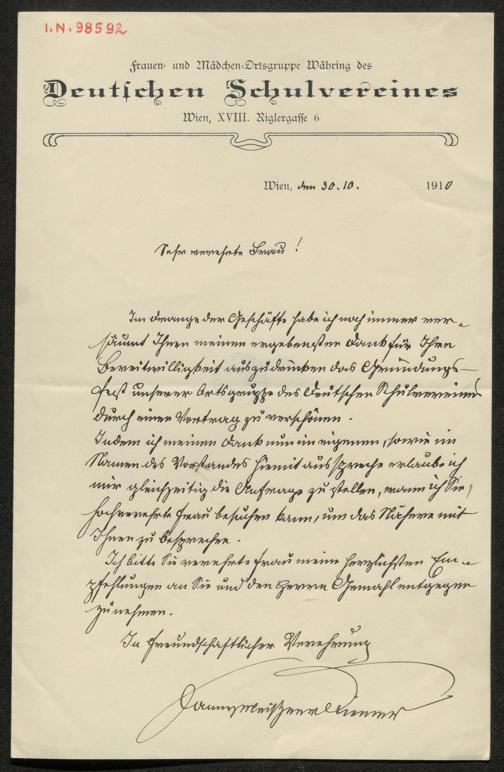 I.N. 98592
Frauen- und Mädchen-Ortsgruppe Währing des
Deutschen Schulvereines
Wien, XVIII. Riglergasse 6
Wien, den 30.10. 1910
Sehr verehrte Frau!
Im Drange der Geschäfte habe ich noch immer ver-
säumt Ihnen meinen ergebensten Dank für Ihre
Bereitwilligkeit auszudrücken das Gründungs-
fest unserer Ortsgruppe des Deutschen Schulvereines
durch einen Vortrag zu verschönen.
Indem ich meinen Dank nun im eigenen, sowie im
Namen des Vorstandes hiemit ausspreche erlaube ich
mir gleichzeitig die Anfrage zu stellen, wann ich Sie,
hochverehrte Frau besuchen kann, um das Nähere mit
Ihnen zu besprechen.
Ich bitte Sie verehrte Frau meine herzlichsten Em-
pfehlungen an Sie und den Herrn Gemahl entgegen
zu nehmen.
In freundschaftlicher Verehrung